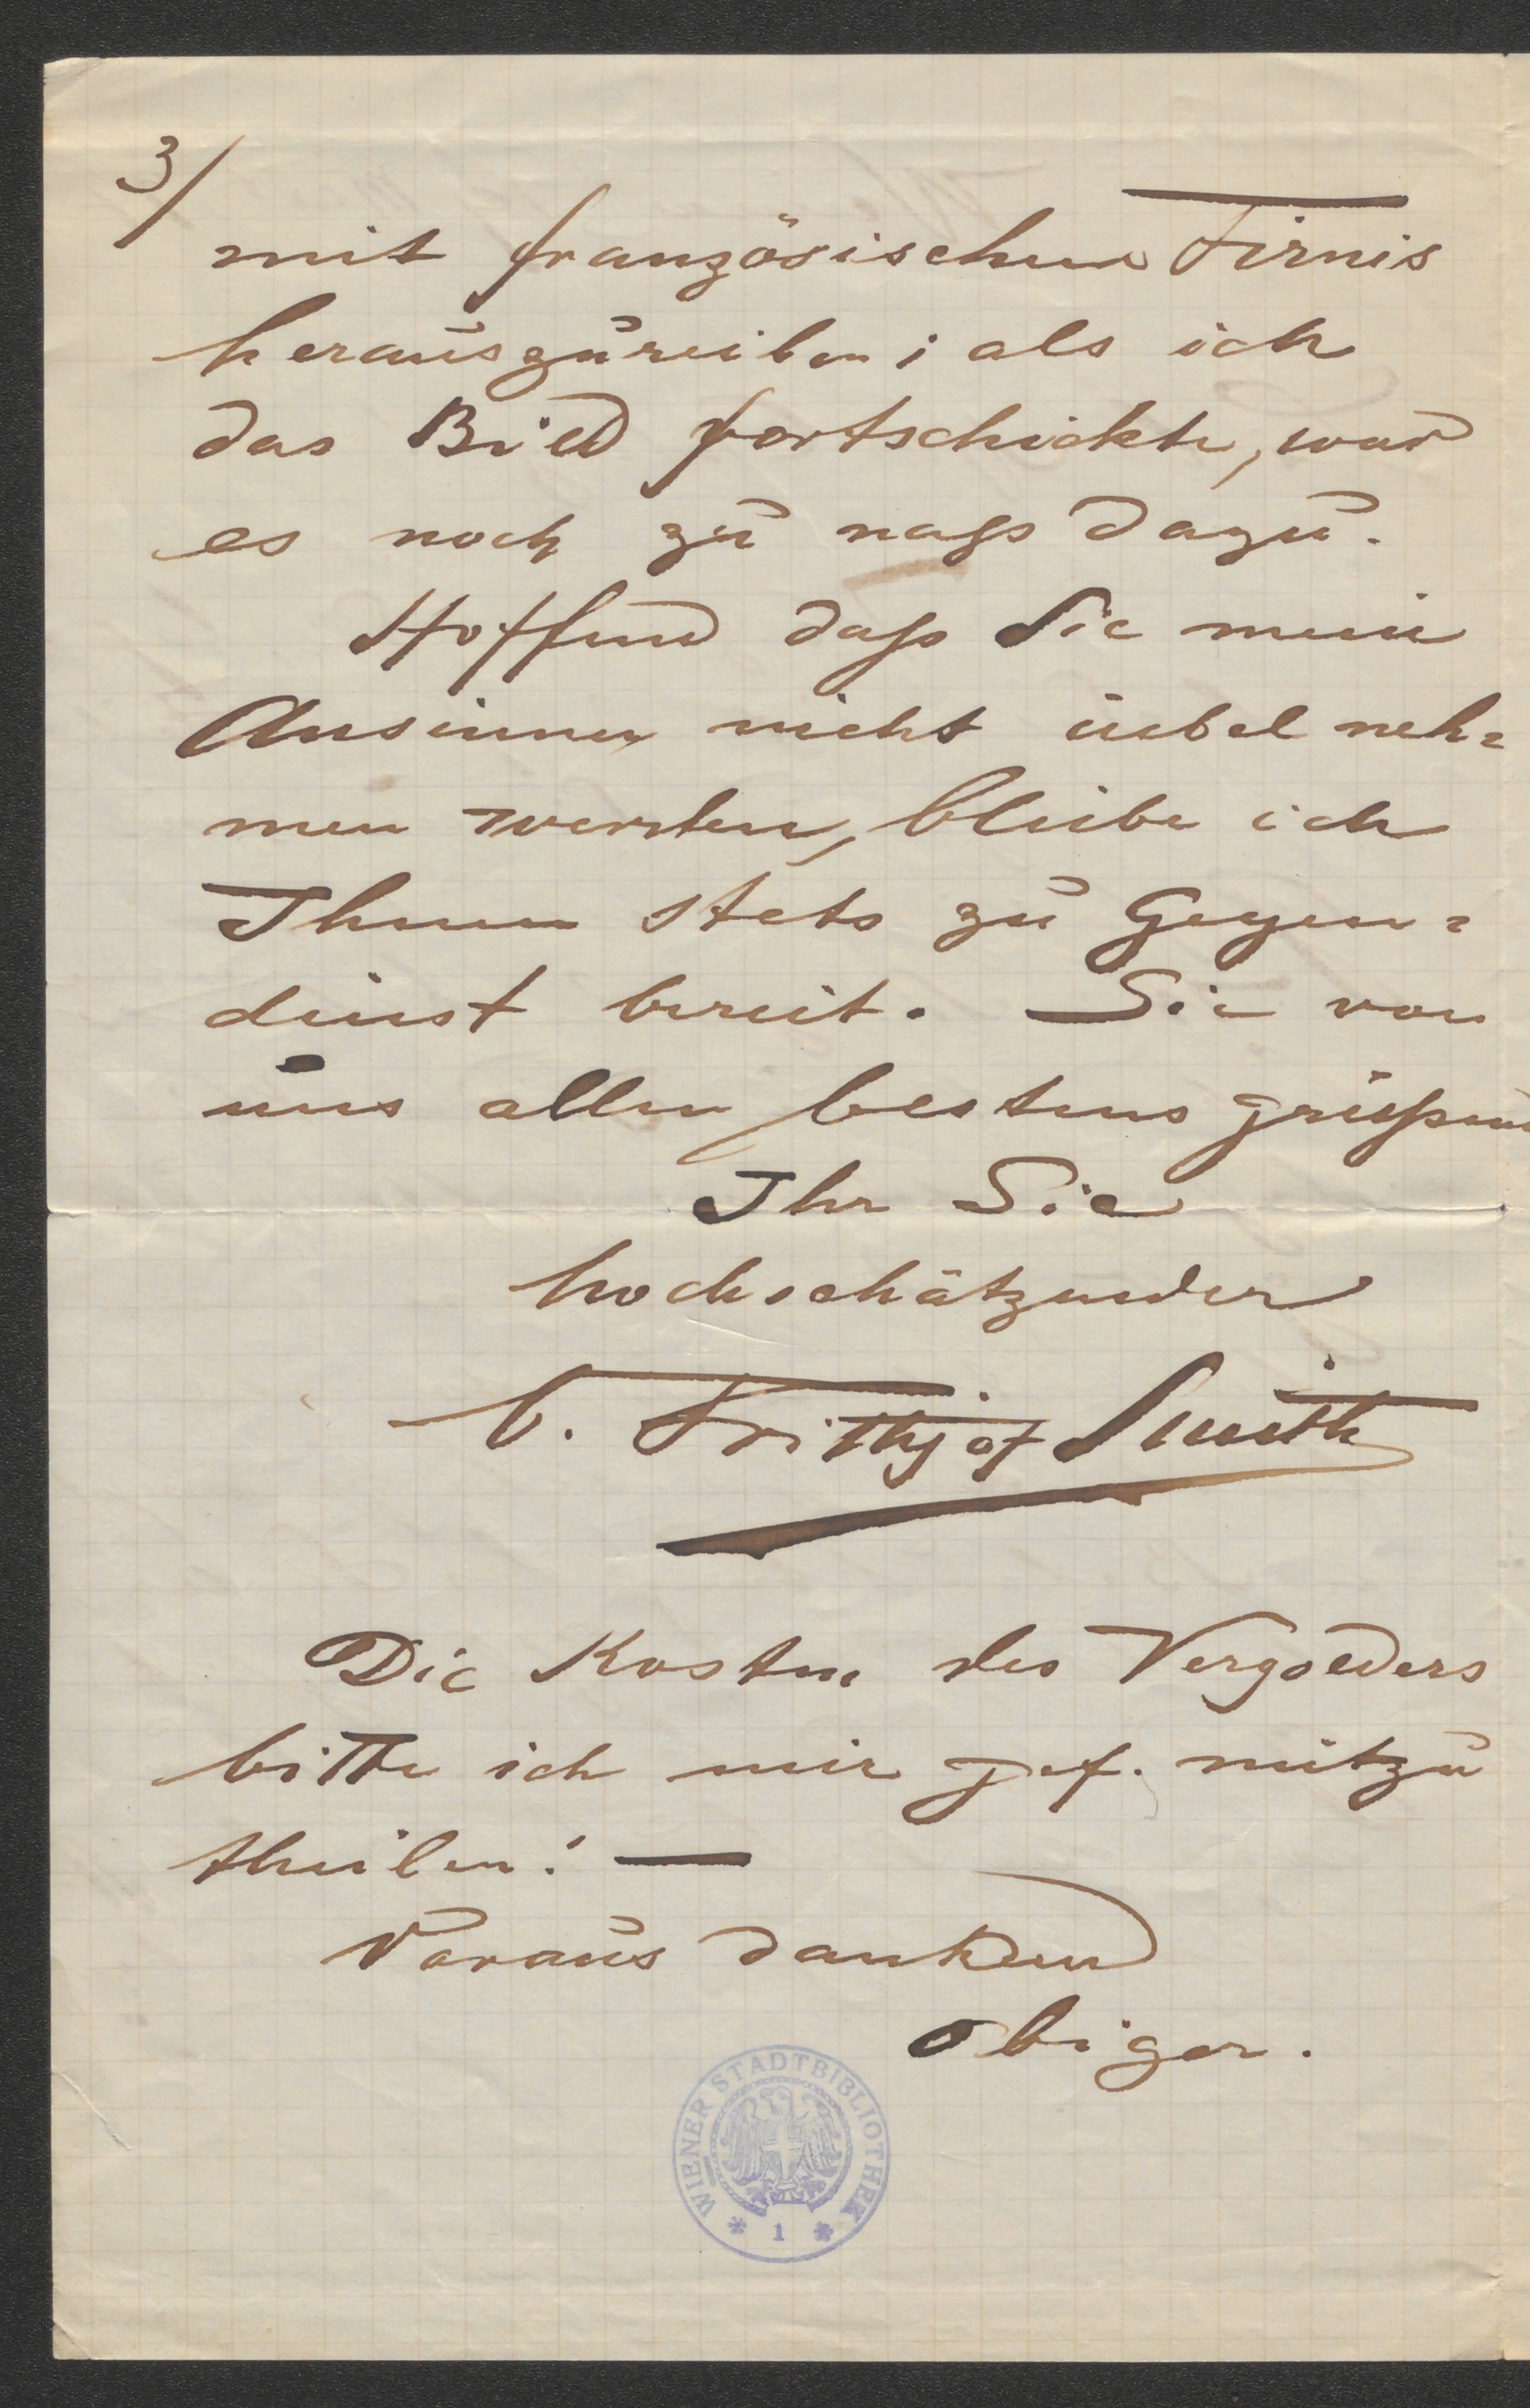 3/
mit französischem Firnis
herauszureiben; als ich
das Bild fortschickte, war
es noch zu nass dazu.
Hoffend dass Sie mein
Ansinnen nicht übel neh=
men werden, bleibe ich
Ihnen stets zu Gegen=
dienst bereit. Sie von
uns allen bestens grüssend
Ihr Sie
hochschätzender
C. Frithjof Smith
Die Kosten des Vergolders
bitte ich mir gef. mitzu
theilen! —
Voraus dankend
obiger.
WIENER STADTBIBLIOTHEK
* 1 *